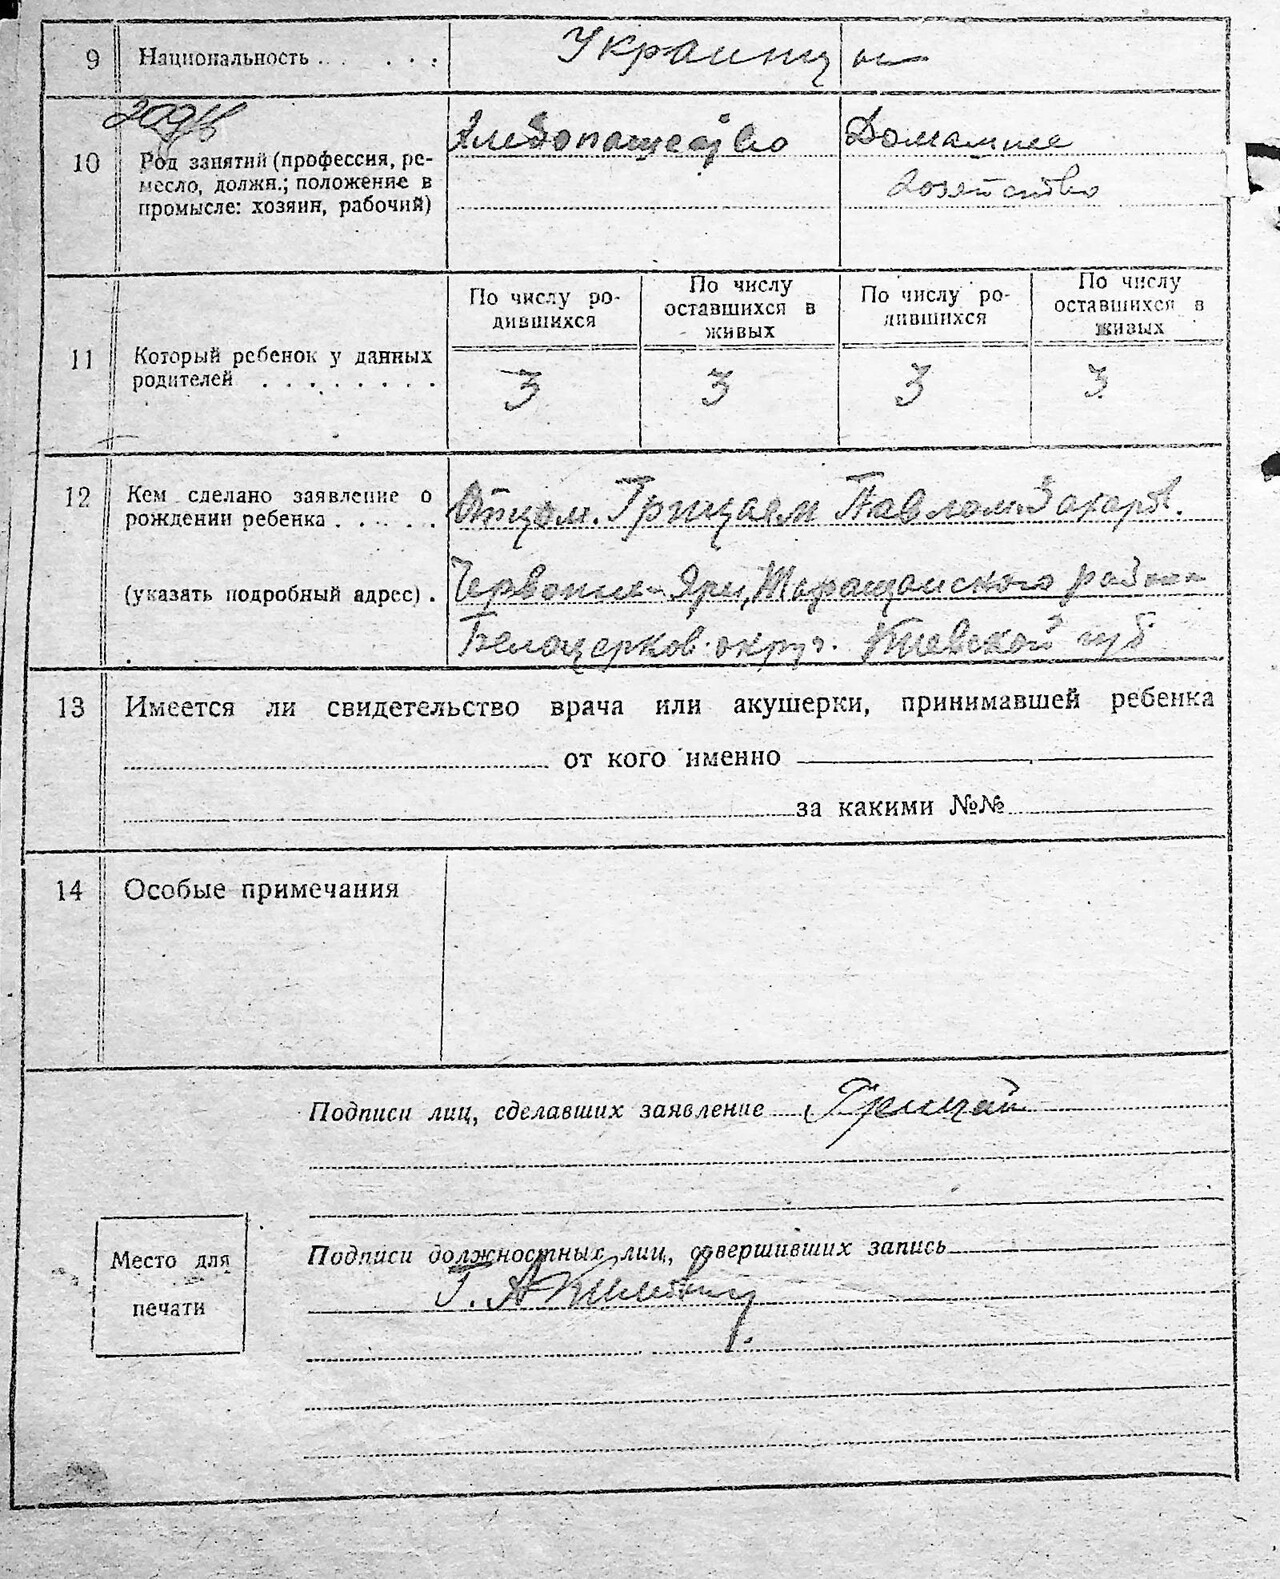 9 Национальность . . . . . . Украинцы
10 Род занятий (профессия, ре-
месло, должн.; положение в
промысле: хозяин, рабочий)
Хлебопашество
Домашнее
хозяйство
11 Который ребенок у данных
родителей . . . . . . . .
По числу ро-
дившихся
По числу
оставшихся в
живых
По числу ро-
дившихся
По числу
оставшихся в
живых
3 3 3 3
12 Кем сделано заявление о
рождении ребенка . . . . .
(указать подробный адрес) .
Отцом. Грицаем Павлом Захаров.
Яри, Таращанского района
Белоцерков. округ. Киевской губ
13 Имеется ли свидетельство врача или акушерки, принимавшей ребенка
от кого именно
за какими №№
14 Особые примечания
Подписи лиц, сделавших заявление Грицай
Подписи должностных лиц, совершивших запись
Место для
печати